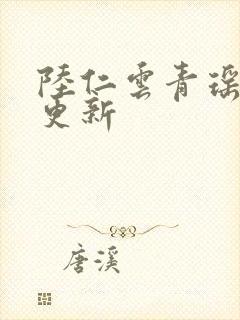 陸仁雲青瑶
更新
唐溪